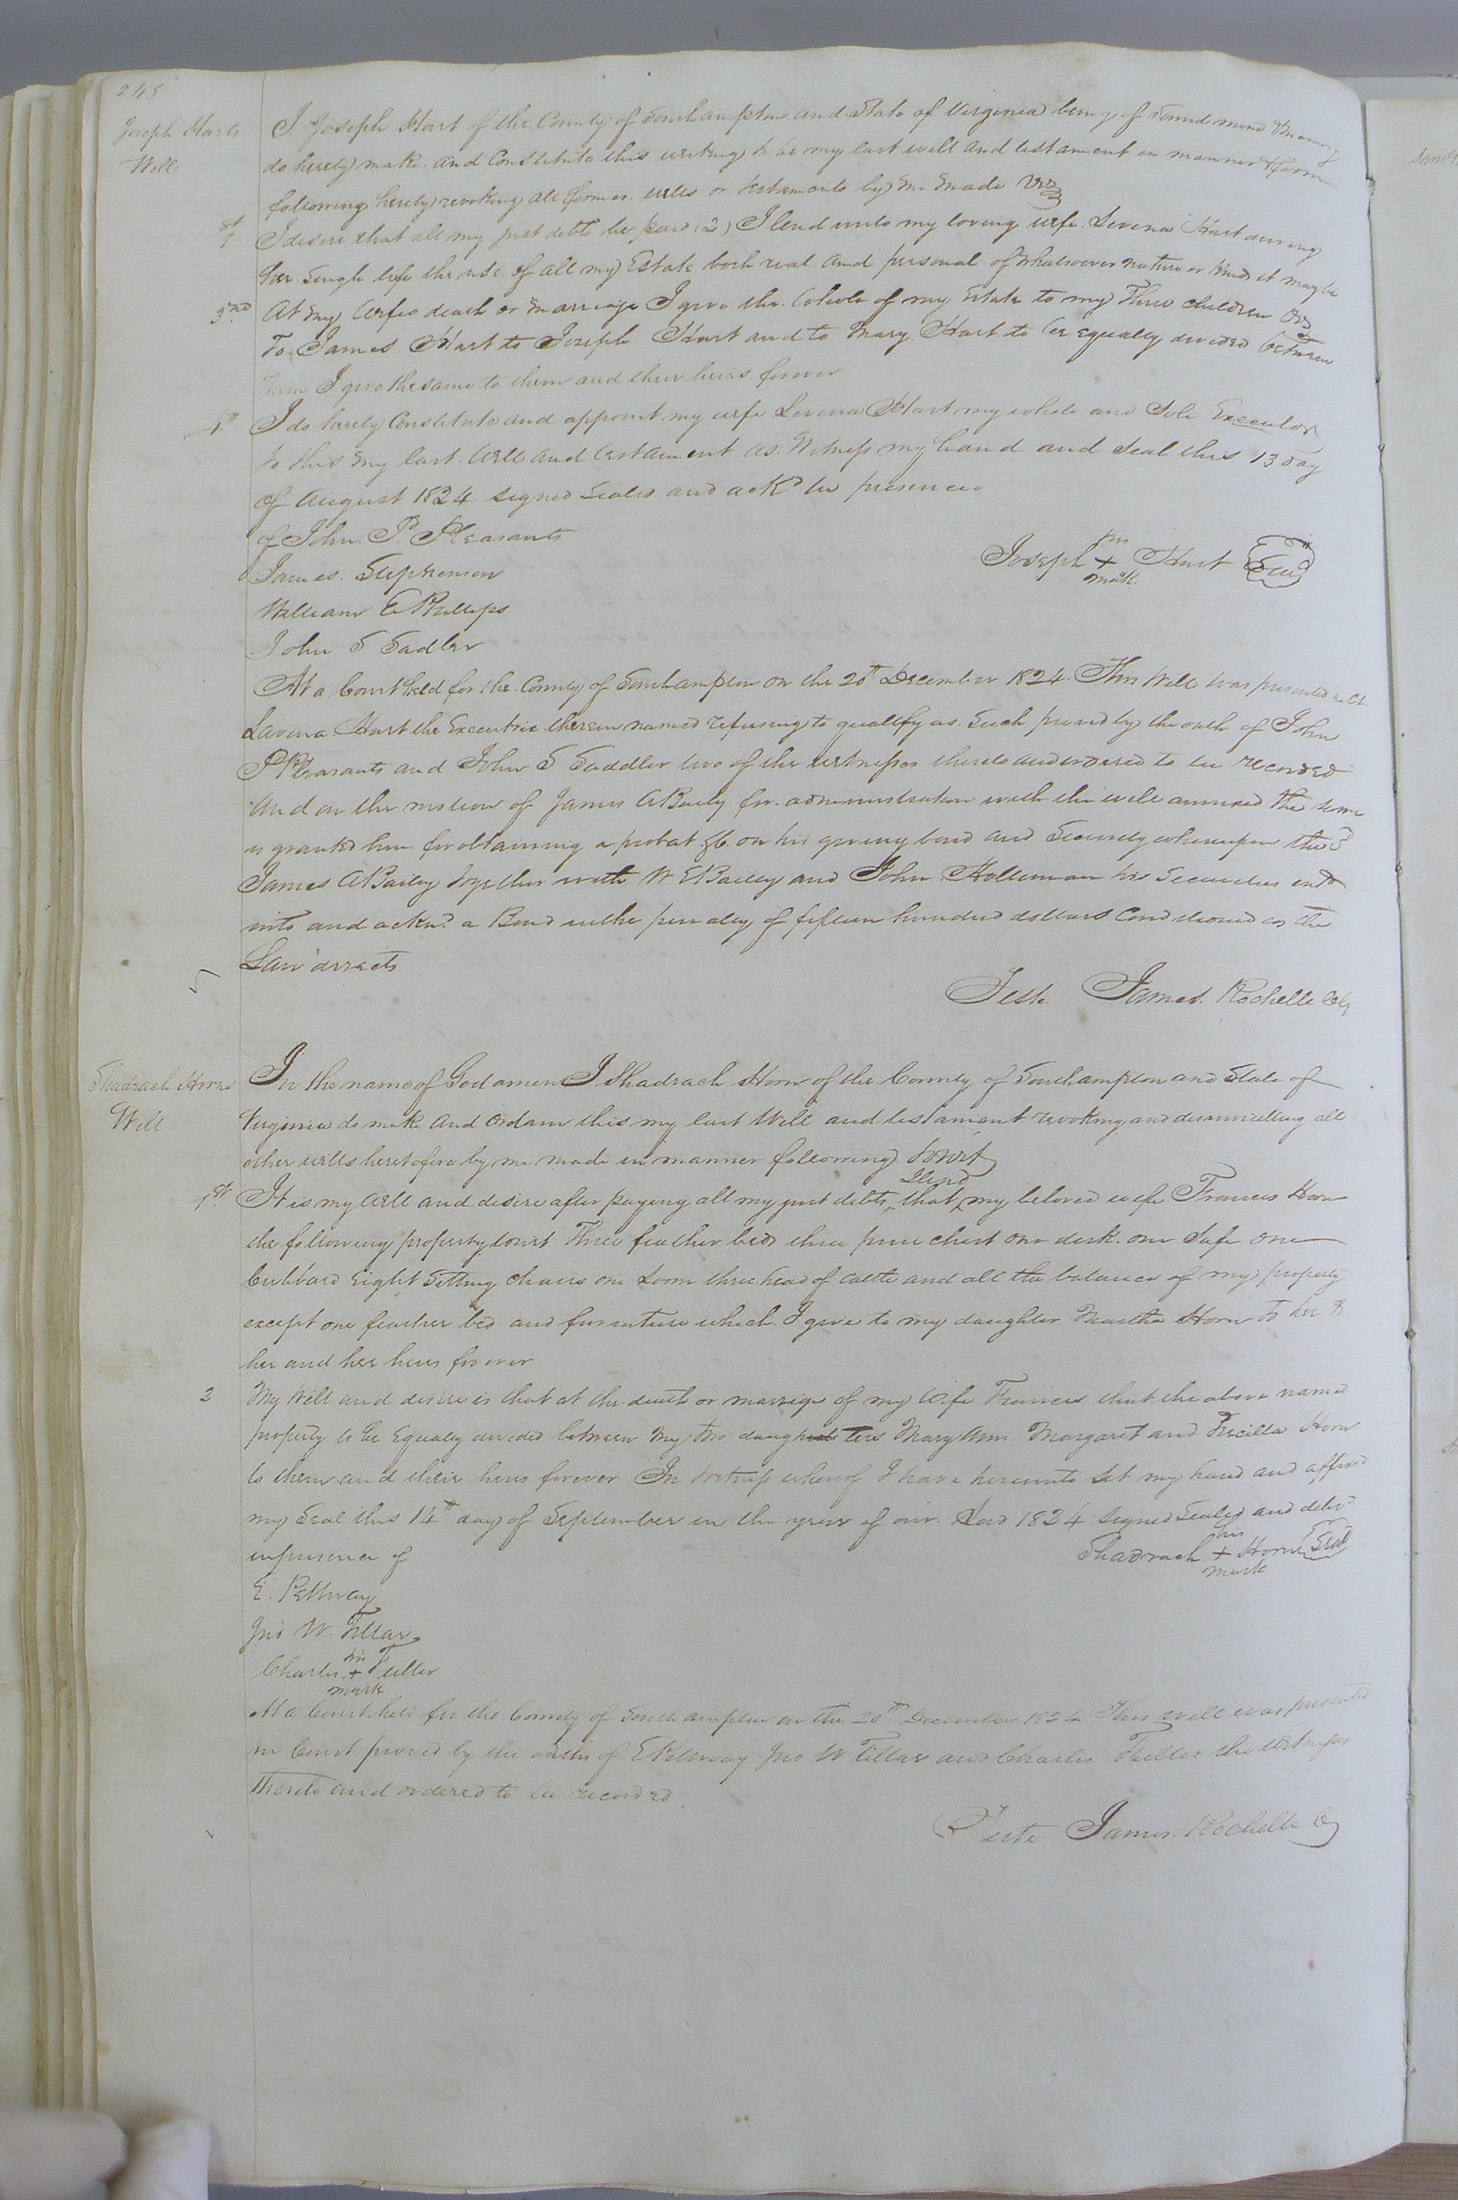 245
Joseph Harts
Will
I Joseph Hart of the County of Southampton and State of Virginia being of Sound mind & memory
do hereby make and Constitute this writing to be my last will and testament in manner & form
following hereby revoking all former wills or testaments by me made Viz
1st I desire that all my just debts be paid (2) I lend unto my loving wife Levina Hart during
her Single life the use of all my Estate both real and personal of Whatsoever nature or kind it may be
3nd At my Wifes death or marriage I give the Whole of my Estate to my Three children Viz
To James Hart to Joseph Hart and to Mary Hart to be equally devided between
them I give the same to them and their heirs forever
4th I do hereby Constitute and appoint my wife Levina Hart my whole and Sole Executor
to this my last Will and testament as Witness my hand and Seal this 13 day
of August 1824 signed Sealed and ackd in presence
of John P. Pleasants
James. Stephenson
William E Phillips
John S Sadler
Joseph his + mark Hart Seal
At a Court held for the County of Southampton on the 20th December 1824. This Will was presented in Ct
Lavina Hart the Executrix therein named refusing to qualify as Such proved by the oath of John
P Pleasants and John S Saddler two of the witnesses thereto and ordered to be recorded
And on the motion of James A Baily for administration with the will annexed the same
is granted him for obtaining a probat &c. on his giving bond and Security whereupon the sd
James A Bailey together with W E Bailey and John Holleman his Securities entd
into and acknd a Bond in the penalty of fifteen hundred dollars Conditioned as the
Law directs
Teste James. Rochelle Clk
Shadrach Horns
Will
In the name of God amen I Shadrach Horn of the County of Southampton and State of
Virginia do make and ordain this my last Will and testament revoking and disannulling all
other wills heretofore by me made in manner following towit
1st It is my Will and desire after paying all my just debts, that I lend my beloved wife Frances Horn
the following property towit Three feather beds three pine chest one desk. one Safe one
Cubboard Eight Sitting chairs one Loom three head of cattle and all the balance of my property
except one feather bed and furniture which I give to my daughter Martha Horn to her &
her and her heirs forever
2 My Will and desire is that at the death or marrige of my Wife Frances that the above named
property to be Equaly devided between My two daughters Mary Ann Margaret and Pricilla Horn
to them and their heirs forever In Witness whereof I have hereunto Set my hand and affixed
my Seal this 14th day of September in the year of our Lord 1824 signed Sealed and delivd
in presence of
Shadrach his + mark Horn Seal
E. Pettway
Jno W. Tillar
Charles his + mark Fuller
At a Court held for the County of Southampton on the 20th December 1824 This will was presented
in Court proved by the oaths of E Pettway Jno W Tillar and Charles Fuller the witnesses
thereto and ordered to be recorded
Teste James. Rochelle Clk